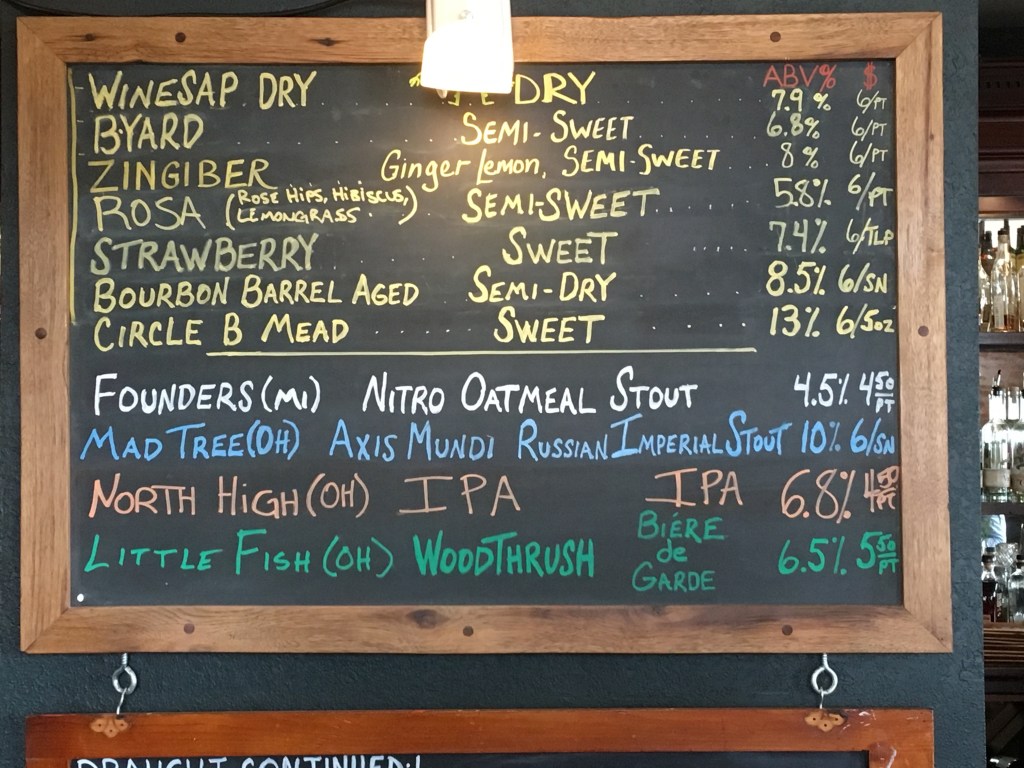 ABV% $
WINESAP DRY DRY 7.9% 6/PT
BYARD SEMI-SWEET 6.8% 6/PT
ZINGIBER Ginger Lemon, SEMI-SWEET 8% 6/PT
ROSA (ROSE HIPS, HIBISCUS, LEMONGRASS) SEMI-SWEET 5.8% 6/PT
STRAWBERRY SWEET 7.4% 6/TLP
BOURBON BARREL AGED SEMI-DRY 8.5% 6/SN
CIRCLE B MEAD SWEET 13% 6/5oz
FOUNDERS (MI) NITRO OATMEAL STOUT 4.5% 4 50/PT
MAD TREE (OH) AXIS MUNDI RUSSIAN IMPERIAL STOUT 10% 6/SN
NORTH HIGH (OH) IPA IPA 6.8% 4 50/PT
LITTLE FISH (OH) WOODTHRUSH BIÉRE de GARDE 6.5% 5 50/PT
DRAUGHT CONTINUED: